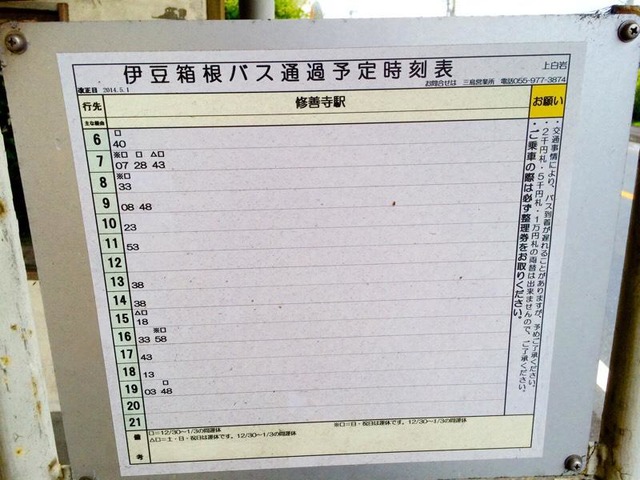 伊豆箱根バス通過予定時刻表
上白岩
改正日 2014.5.1
お問合せは 三島営業所 電話055-977-3874
行先
修善寺駅
お願い
主な経由
6
□
40
7
※□ □ △□
07 28 43
8
※□
33
9
08 48
10
23
11
53
12
13
38
14
38
15
△□
18
16
※□
33 58
17
43
18
13
19
□
03 48
20
21
・交通事情により、バス到着が遅れることがありますが、予めご了承ください。
・2千円札・5千円札・1万円札の両替は出来ませんので、ご了承ください。
・ご乗車の際は必ず整理券をお取りください。
備考
□=12/30~1/3の間運休
※□=日・祝日は運休です。12/30~1/3の間運休
△□=土・日・祝日は運休です。12/30~1/3の間運休